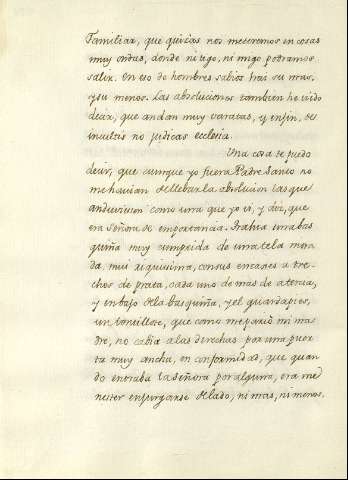 Familiar, que quizas nos meteremos en cosas
muy ondas, donde ni tigo, ni migo podramos
salir. En eso de hombres sabios hai su mas,
y su menos. Las absoluciones tambien he oido
decir, que andan muy varatas, y enfin, de
incultis no judicas eclecia.
Una cosa te puedo
decir, que aunque yo fuera Padre Santo no
me havian de llebar la absolucion las que
anduvieran como una que yo vi, y diz, que
era Señora de emportancia. Trahia una bas
quiña muy cumprida de una tela mora
da, mui riquissima, con sus encaxes a tre-
chos de prata, cada uno de mas de a tercia,
y en bajo de la basquiña, y el guardapies,
un tontillote, que como me parió mi ma
dre, no cabia a las derechas por una puer
ta muy ancha, en conformidad, que quan
do entraba la señora por alguna, era me
nester enfurgarse de lado, ni mas, ni menos.